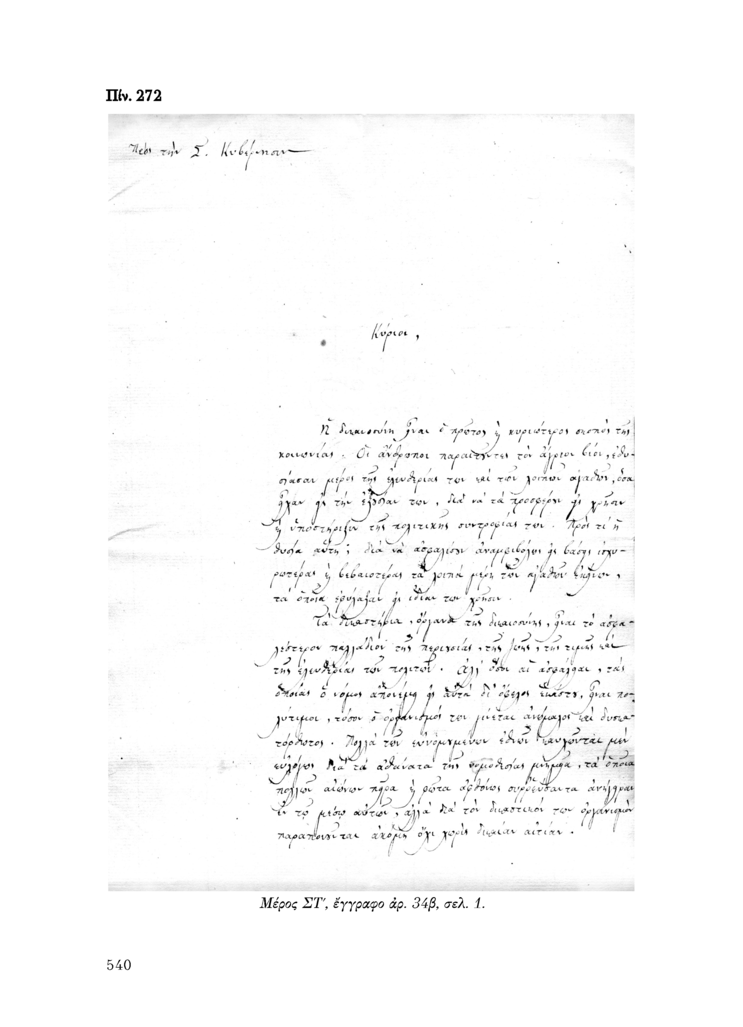 Πίν. 272
Πρὸς τὴν Σ. Κυβέρνησιν
Κύριοι,
Ἡ δικαιοσύνη εἶναι ὁ πρῶτος ἢ κυριώτερος σκοπὸς τῆς
κοινωνίας. Οἱ ἄνθρωποι παραιτοῦντες τὸν ἄγριον βίον, ἐθυ-
σίασαν μέρος τῆς ἐλευθερίας των καὶ τῶν λοιπῶν ἀγαθῶν, ὅσα
εἶχαν εἰς τὴν ἐξουσίαν των, διὰ νὰ τὰ προσφέρουν εἰς χρῆσιν
ἢ ὑποστήριξιν τῆς πολιτικῆς συντροφίας των. Πρὸς τί ἡ
θυσία αὕτη; διὰ νὰ ἀσφαλίσουν ἀναμφιβόλως εἰς βάσεις ἰσχυ-
ροτέρας ἢ βεβαιοτέρας τὰ λοιπὰ μέρη τῶν ἀγαθῶν ἐκείνων,
τὰ ὁποῖα ἐφύλαξαν εἰς ἰδίαν των χρῆσιν.
Τὰ δικαστήρια, ὄργανα τῆς δικαιοσύνης, εἶναι τὸ ἀσφα-
λέστερον παλλάδιον τῆς περιουσίας, τῆς ζωῆς, τῆς τιμῆς καὶ
τῆς ἐλευθερίας τῶν πολιτῶν. Ἀλλ' ὅσον αἱ ἀσφάλειαι, τὰς
ὁποίας ὁ νόμος ἀπονέμει εἰς αὐτὰ δι' ὄφελος ἑκάστου, εἶναι πο-
λύτιμοι, τόσον ὁ ὀργανισμός των γίνεται ἀνώμαλος καὶ δυσκα-
τόρθωτος. Πολλὰ τῶν εὐνομουμένων ἐθνῶν καυχῶνται μὲν
εὐλόγως διὰ τὰ ἀθάνατα τῆς νομοθεσίας μνημεῖα, τὰ ὁποῖα
πολλῶν αἰώνων πεῖρα ἢ φῶτα ἀφθόνως συρρεύσαντα ἀνήγειραν
ἐν τῷ μέσῳ αὐτῶν, ἀλλὰ διὰ τὸν δικαστικόν των ὀργανισμὸν
παραπονοῦνται ἀκόμη ὄχι χωρὶς δικαίαν αἰτίαν.
Μέρος ΣΤ', ἔγγραφο ἀρ. 34β, σελ. 1.
540